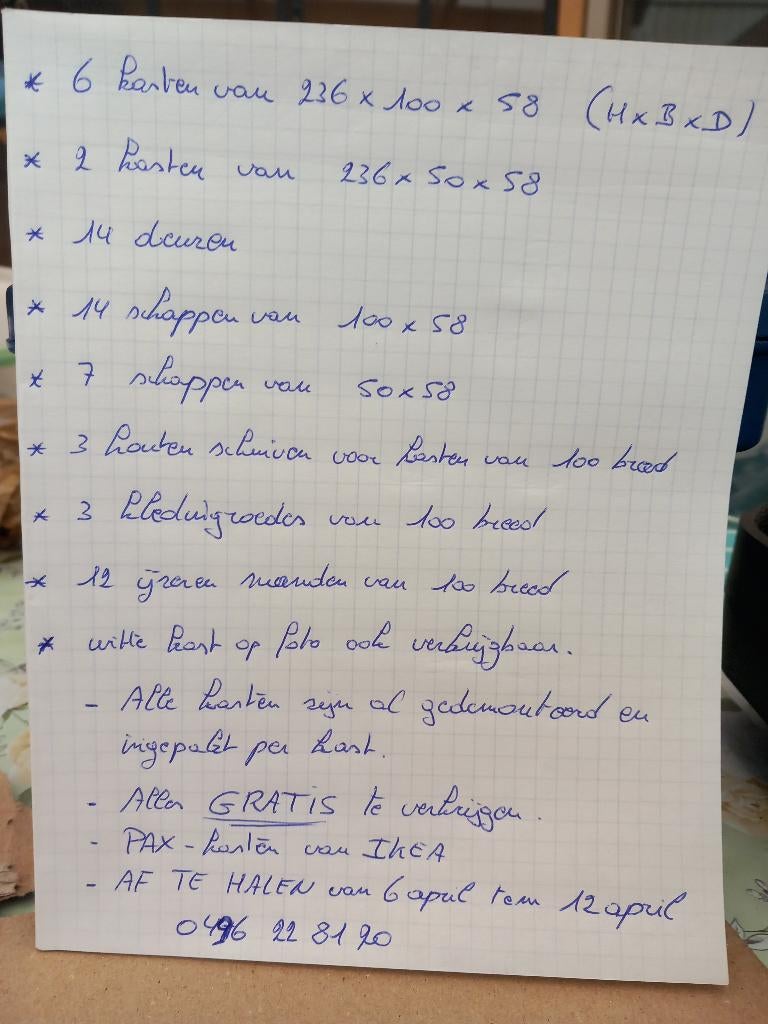 * 6 kasten van 236 x 100 x 58 (H x B x D)
* 2 kasten van 236 x 50 x 58
* 14 deuren
* 14 schappen van 100 x 58
* 7 schappen van 50 x 58
* 3 houten schuiven voor kasten van 100 breed
* 3 kledingroedes van 100 breed
* 12 ijzeren manden van 100 breed
* witte kast op foto ook verkrijgbaar.
- Alle kasten zijn al gedemonteerd en
ingepakt per kast.
- Alles GRATIS te verkrijgen.
- PAX-kasten van IKEA
- AF TE HALEN van 6 april tem 12 april
0496 22 81 20